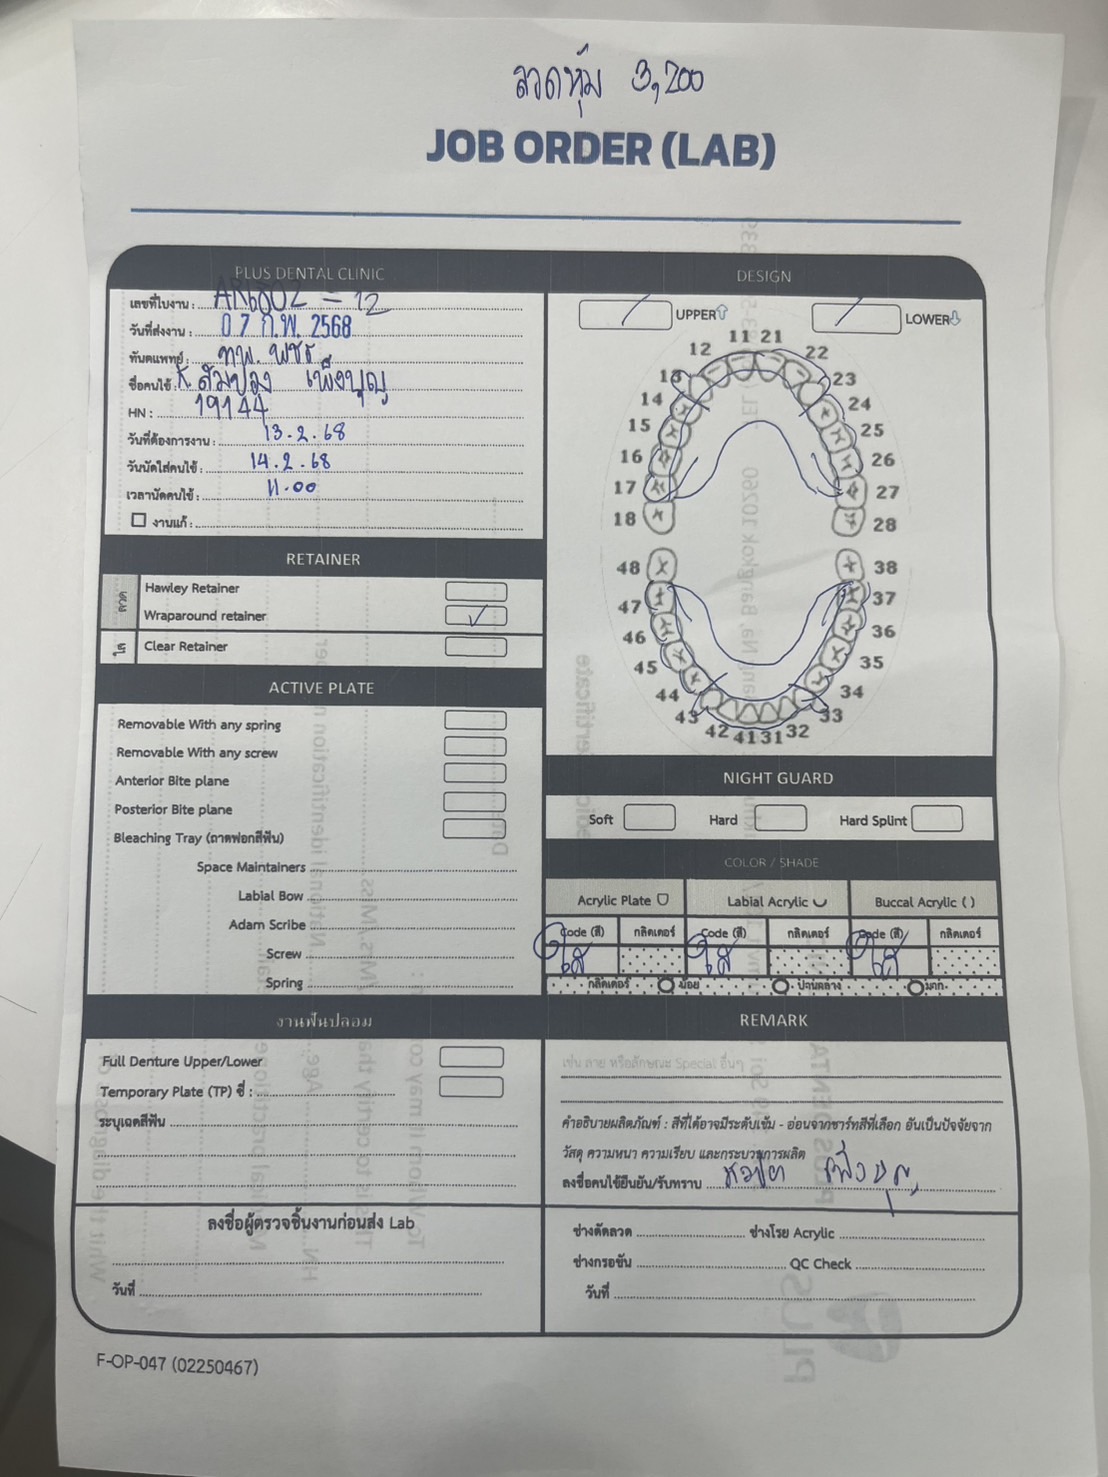 ลวดหุ้ม 3,200
JOB ORDER (LAB)
PLUS DENTAL CLINIC
เลขที่ใบงาน : AR6802 - 12
วันที่ส่งงาน : 07 ก.พ. 2568
ทันตแพทย์ : ทพ. พชร
ชื่อคนไข้ : K.
HN : 19144
วันที่ต้องการงาน : 13.2.68
วันนัดใส่คนไข้ : 14.2.68
เวลานัดคนไข้ : 11.00
งานแก้ :
RETAINER
ลวด
Hawley Retainer
Wraparound retainer ✓
ใส
Clear Retainer
ACTIVE PLATE
Removable With any spring
Removable With any screw
Anterior Bite plane
Posterior Bite plane
Bleaching Tray (ถาดฟอกสีฟัน)
Space Maintainers
Labial Bow
Adam Scribe
Screw
Spring
งานฟันปลอม
Full Denture Upper/Lower
Temporary Plate (TP) ซี่ :
ระบุเฉดสีฟัน
ลงชื่อผู้ตรวจชิ้นงานก่อนส่ง Lab
วันที่
DESIGN
/ UPPER / LOWER
11 21
12 22
13 23
14 24
15 25
16 26
17 27
18 28
48 38
47 37
46 36
45 35
44 34
43 33
42 41 31 32
NIGHT GUARD
Soft Hard Hard Splint
COLOR / SHADE
Acrylic Plate Labial Acrylic Buccal Acrylic ( )
Code (สี) กลิตเตอร์ Code (สี) กลิตเตอร์ Code (สี) กลิตเตอร์
ใส ใส ใส
กลิตเตอร์ น้อย ปานกลาง มาก
REMARK
เช่น ลาย หรือลักษณะ Special อื่นๆ
คำอธิบายผลิตภัณฑ์ : สีที่ได้อาจมีระดับเข้ม - อ่อนจากชาร์ทสีที่เลือก อันเป็นปัจจัยจาก
วัสดุ ความหนา ความเรียบ และกระบวนการผลิต
ลงชื่อคนไข้ยืนยัน/รับทราบ
ช่างดัดลวด ช่างโรย Acrylic
ช่างกรอขัน QC Check
วันที่
F-OP-047 (02250467)